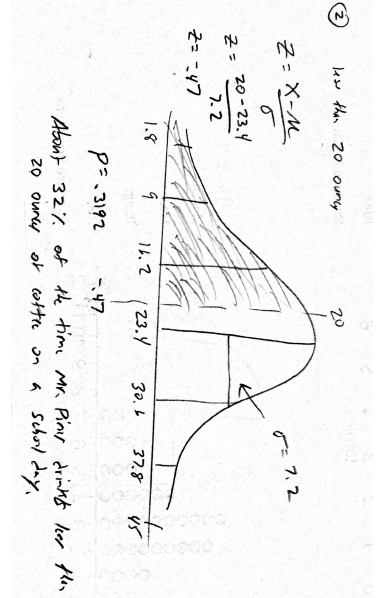 ② less than 20 ounces
Z = X - μ / σ
Z = 20 - 23.4 / 7.2
Z = -.47
20
σ = 7.2
1.8 9 16.2 23.4 30.6 37.8 45
-.47
P = .3192
About 32% of the time Mr. Pinv drinks less than
20 ounces of coffee on a school day.